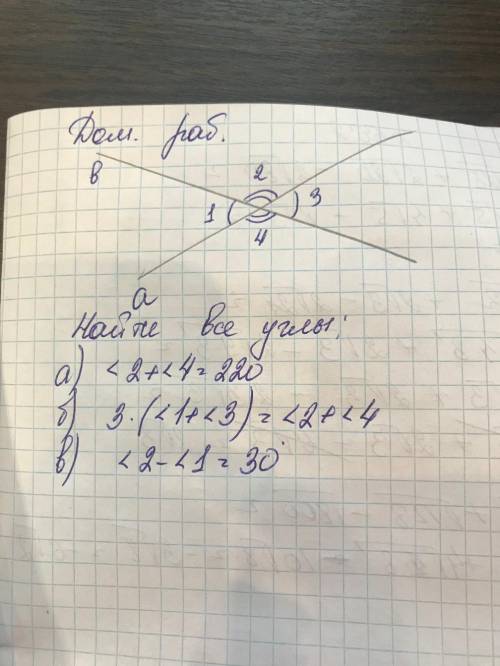 Дом. раб.
в
2
1
3
4
а
Найти все углы:
а) <2+<4=220
б) 3·(<1+<3)=<2+<4
в) <2-<1=30°